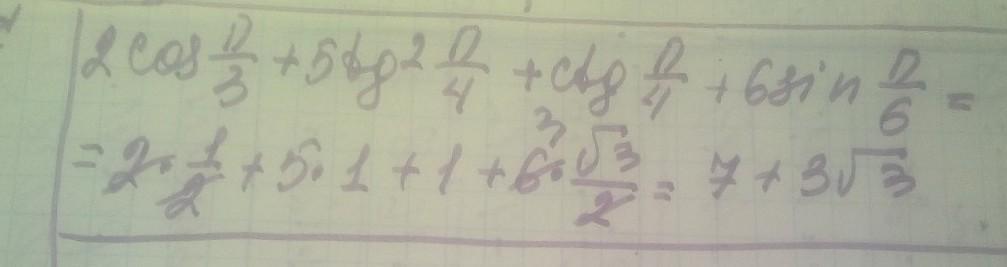 2 cos π/3 + 5 tg² π/4 + ctg π/4 + 6 sin π/6 =
= 2 · 1/2 + 5 · 1 + 1 + 6 · √3/2 = 7 + 3√3